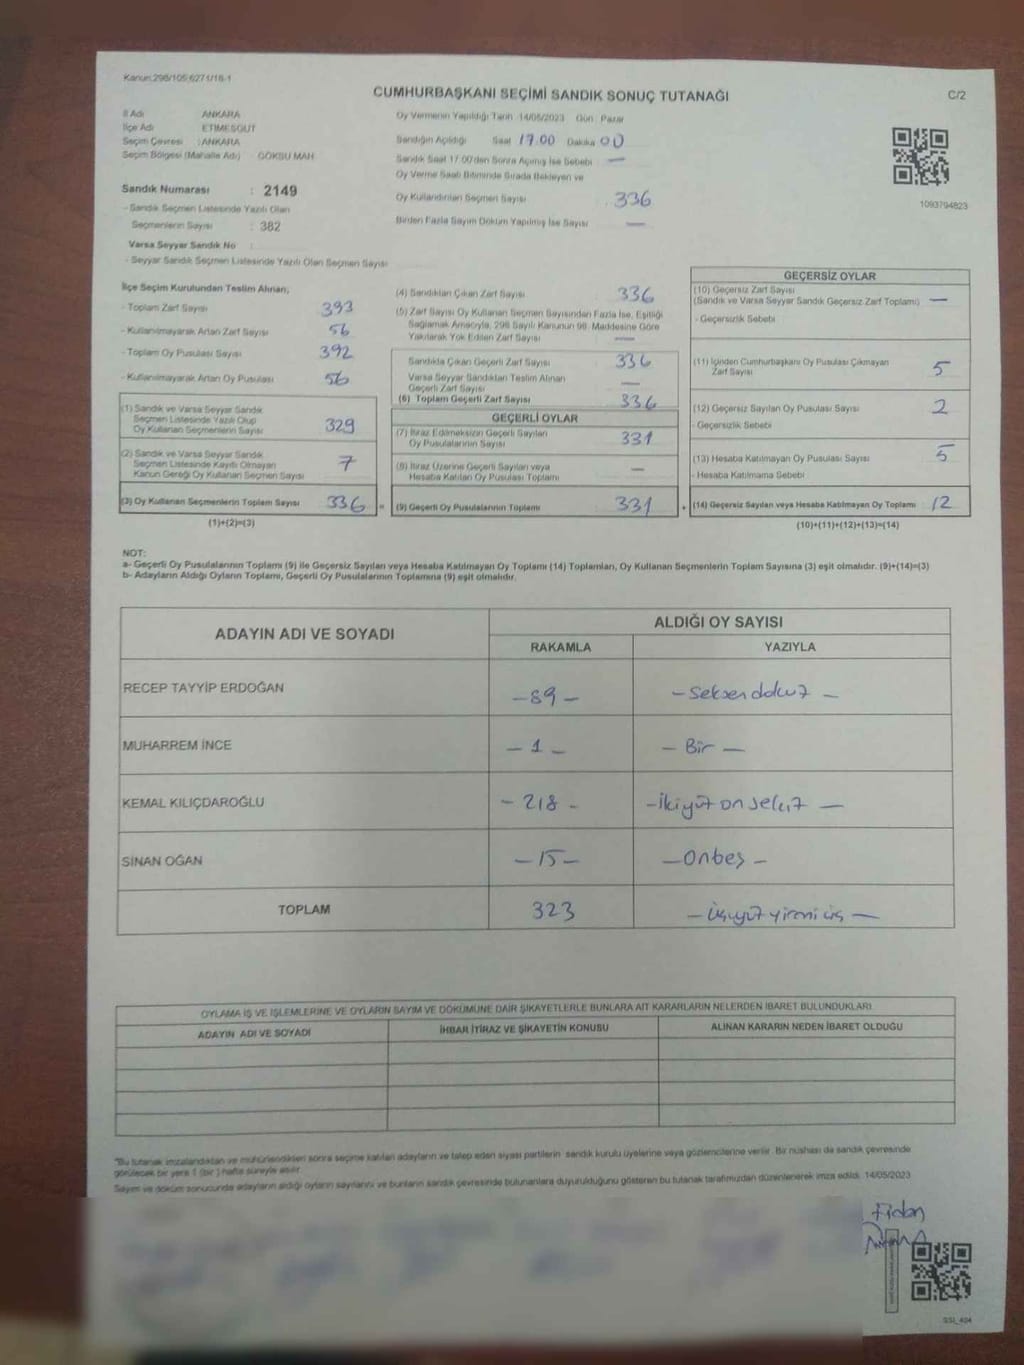 Kanun:298/105;6271/18-1
CUMHURBAŞKANI SEÇİMİ SANDIK SONUÇ TUTANAĞI
C/2
İl Adı : ANKARA
İlçe Adı : ETİMESGUT
Seçim Çevresi : ANKARA
Seçim Bölgesi (Mahalle Adı) : GÖKSU MAH.
Oy Vermenin Yapıldığı Tarih 14/05/2023 Gün : Pazar
Sandığın Açıldığı Saat 17.00 Dakika 00
Sandık Saat 17:00'den Sonra Açılmış İse Sebebi —
Oy Verme Saati Bitiminde Sırada Bekleyen ve
Oy Kullandırılan Seçmen Sayısı 336
Birden Fazla Sayım Döküm Yapılmış İse Sayısı —
1093794823
Sandık Numarası : 2149
- Sandık Seçmen Listesinde Yazılı Olan
Seçmenlerin Sayısı : 382
Varsa Seyyar Sandık No :
- Seyyar Sandık Seçmen Listesinde Yazılı Olan Seçmen Sayısı
İlçe Seçim Kurulundan Teslim Alınan;
- Toplam Zarf Sayısı 393
- Kullanılmayarak Artan Zarf Sayısı 56
- Toplam Oy Pusulası Sayısı 392
- Kullanılmayarak Artan Oy Pusulası 56
(1) Sandık ve Varsa Seyyar Sandık
Seçmen Listesinde Yazılı Olup
Oy Kullanan Seçmenlerin Sayısı 329
(2) Sandık ve Varsa Seyyar Sandık
Seçmen Listesinde Kayıtlı Olmayan
Kanun Gereği Oy Kullanan Seçmen Sayısı 7
(3) Oy Kullanan Seçmenlerin Toplam Sayısı 336 =
(1)+(2)=(3)
(4) Sandıktan Çıkan Zarf Sayısı 336
(5) Zarf Sayısı Oy Kullanan Seçmen Sayısından Fazla İse, Eşitliği
Sağlamak Amacıyla, 298 Sayılı Kanunun 98. Maddesine Göre
Yakılarak Yok Edilen Zarf Sayısı —
Sandıkta Çıkan Geçerli Zarf Sayısı 336
Varsa Seyyar Sandıktan Teslim Alınan
Geçerli Zarf Sayısı —
(6) Toplam Geçerli Zarf Sayısı 336
GEÇERLİ OYLAR
(7) İtiraz Edilmeksizin Geçerli Sayılan
Oy Pusulalarının Sayısı 331
(8) İtiraz Üzerine Geçerli Sayılan veya
Hesaba Katılan Oy Pusulası Toplamı —
(9) Geçerli Oy Pusulalarının Toplamı 331 +
GEÇERSİZ OYLAR
(10) Geçersiz Zarf Sayısı
(Sandık ve Varsa Seyyar Sandık Geçersiz Zarf Toplamı) —
- Geçersizlik Sebebi
(11) İçinden Cumhurbaşkanı Oy Pusulası Çıkmayan
Zarf Sayısı 5
(12) Geçersiz Sayılan Oy Pusulası Sayısı 2
- Geçersizlik Sebebi
(13) Hesaba Katılmayan Oy Pusulası Sayısı 5
- Hesaba Katılmama Sebebi
(14) Geçersiz Sayılan veya Hesaba Katılmayan Oy Toplamı : 12
(10)+(11)+(12)+(13)=(14)
NOT:
a- Geçerli Oy Pusulalarının Toplamı (9) ile Geçersiz Sayılan veya Hesaba Katılmayan Oy Toplamı (14) Toplamları, Oy Kullanan Seçmenlerin Toplam Sayısına (3) eşit olmalıdır. (9)+(14)=(3)
b- Adayların Aldığı Oyların Toplamı, Geçerli Oy Pusulalarının Toplamına (9) eşit olmalıdır.
ADAYIN ADI VE SOYADI
ALDIĞI OY SAYISI
RAKAMLA YAZIYLA
RECEP TAYYİP ERDOĞAN -89- -Seksendokuz-
MUHARREM İNCE -1- -Bir-
KEMAL KILIÇDAROĞLU -218- -İkiyüz onsekiz-
SİNAN OĞAN -15- -Onbeş-
TOPLAM 323 -üçyüzyirmiüç-
OYLAMA İŞ VE İŞLEMLERİNE VE OYLARIN SAYIM VE DÖKÜMÜNE DAİR ŞİKAYETLERLE BUNLARA AİT KARARLARIN NELERDEN İBARET BULUNDUKLARI
ADAYIN ADI VE SOYADI İHBAR İTİRAZ VE ŞİKAYETİN KONUSU ALINAN KARARIN NEDEN İBARET OLDUĞU
"Bu tutanak imzalandıktan ve mühürlendikten sonra seçime katılan adayların ve talep eden siyasi partilerin sandık kurulu üyelerine veya gözlemcilerine verilir. Bir nüshası da sandık çevresinde
görülecek bir yere 1 (bir) hafta süreyle asılır.
Sayım ve döküm sonucunda adayların aldığı oyların sayılarını ve bunların sandık çevresinde bulunanlara duyurulduğunu gösteren bu tutanak tarafımızdan düzenlenerek imza edildi. 14/05/2023
Fidan
SSI_404